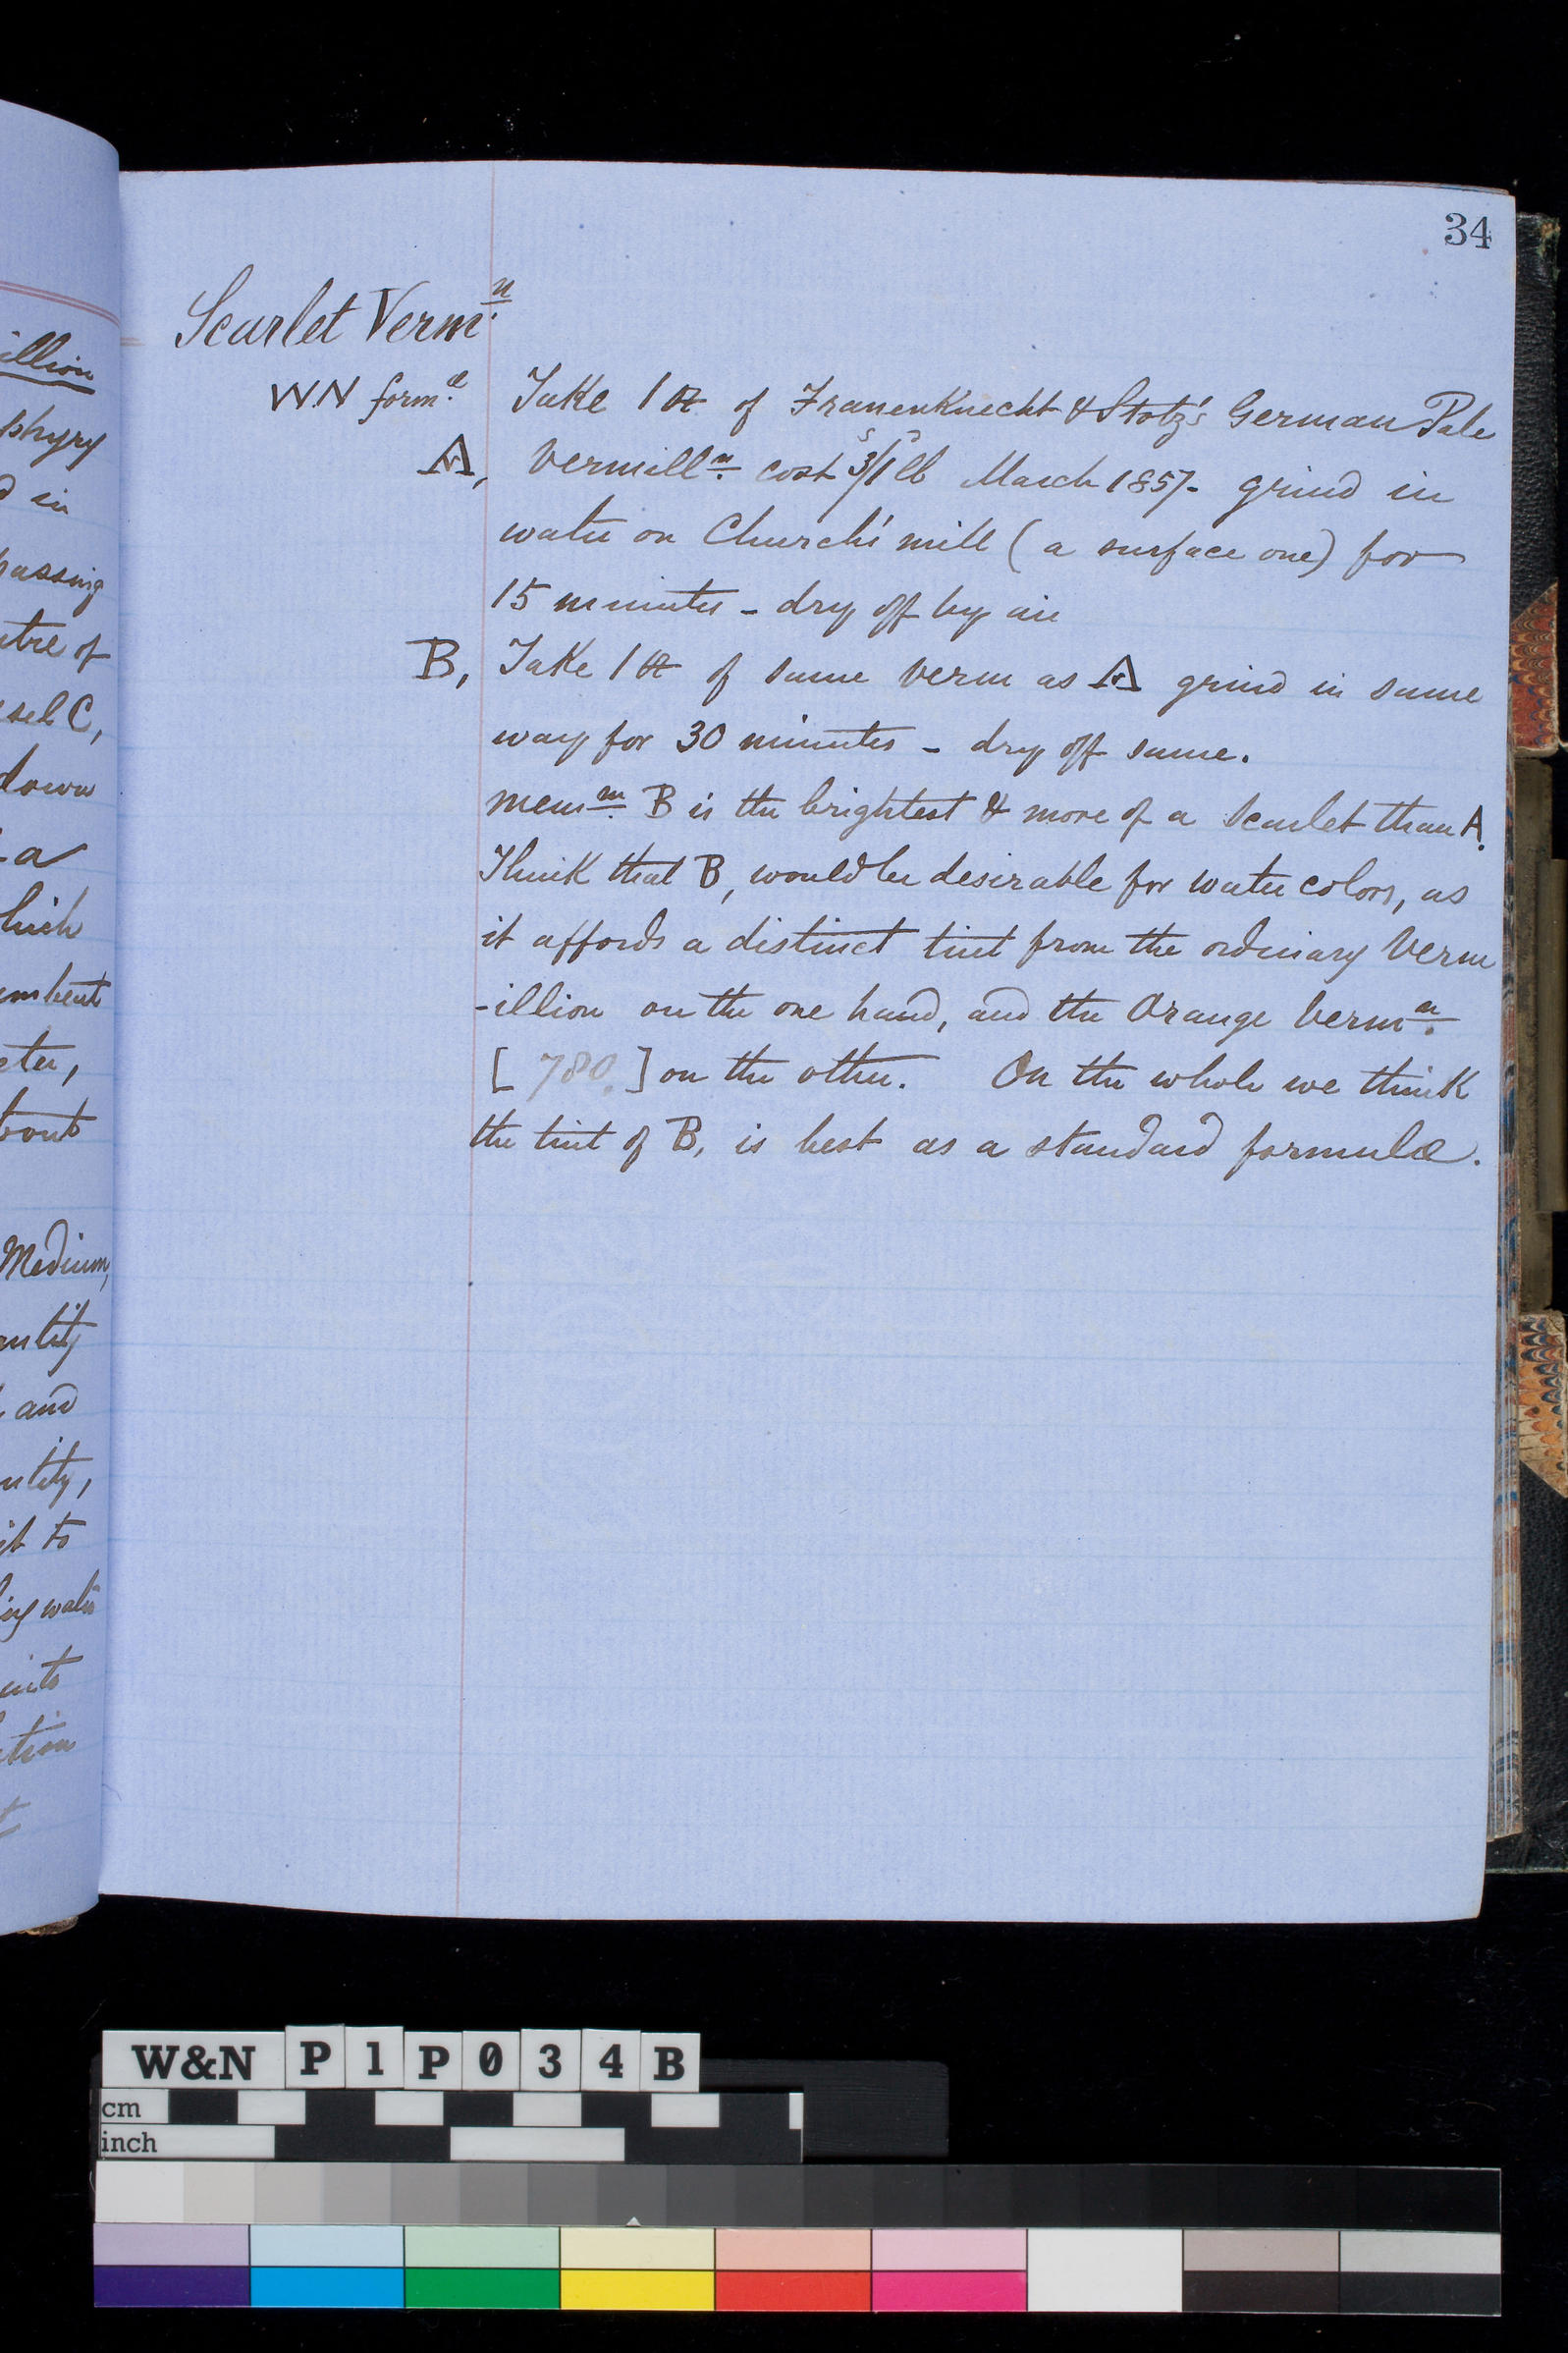 illion
phyry
d in
passing
ntre of
sel C,
down
a
hich
umbent
eter,
bout
Medium,
antity
and
ntity,
it to
ing water
into
ation
t
34
Scarlet Vermn.
W.N forml.
Take 1 lb of Frauenknecht & Stotz's German Pale
A, Vermilln. cost 3s/1 lb March 1857 - grind in
water on Church's mill (a surface one) for
15 minutes - dry off by air
B, Take 1 lb of same Verm as A grind in same
way for 30 minutes - dry off same.
memm. B is the brightest & more of a Scarlet than A.
Think that B, would be desirable for water colors, as
it affords a distinct tint from the ordinary Verm
-illion on the one hand, and the Orange Vermn.
[780.] on the other. On the whole we think
the tint of B, is best as a standard formula.
W&N P1P034B
cm
inch